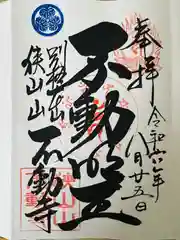 奉拝
令和六年
八月廿五日
不動明王
別格本山
狭山山
不動寺